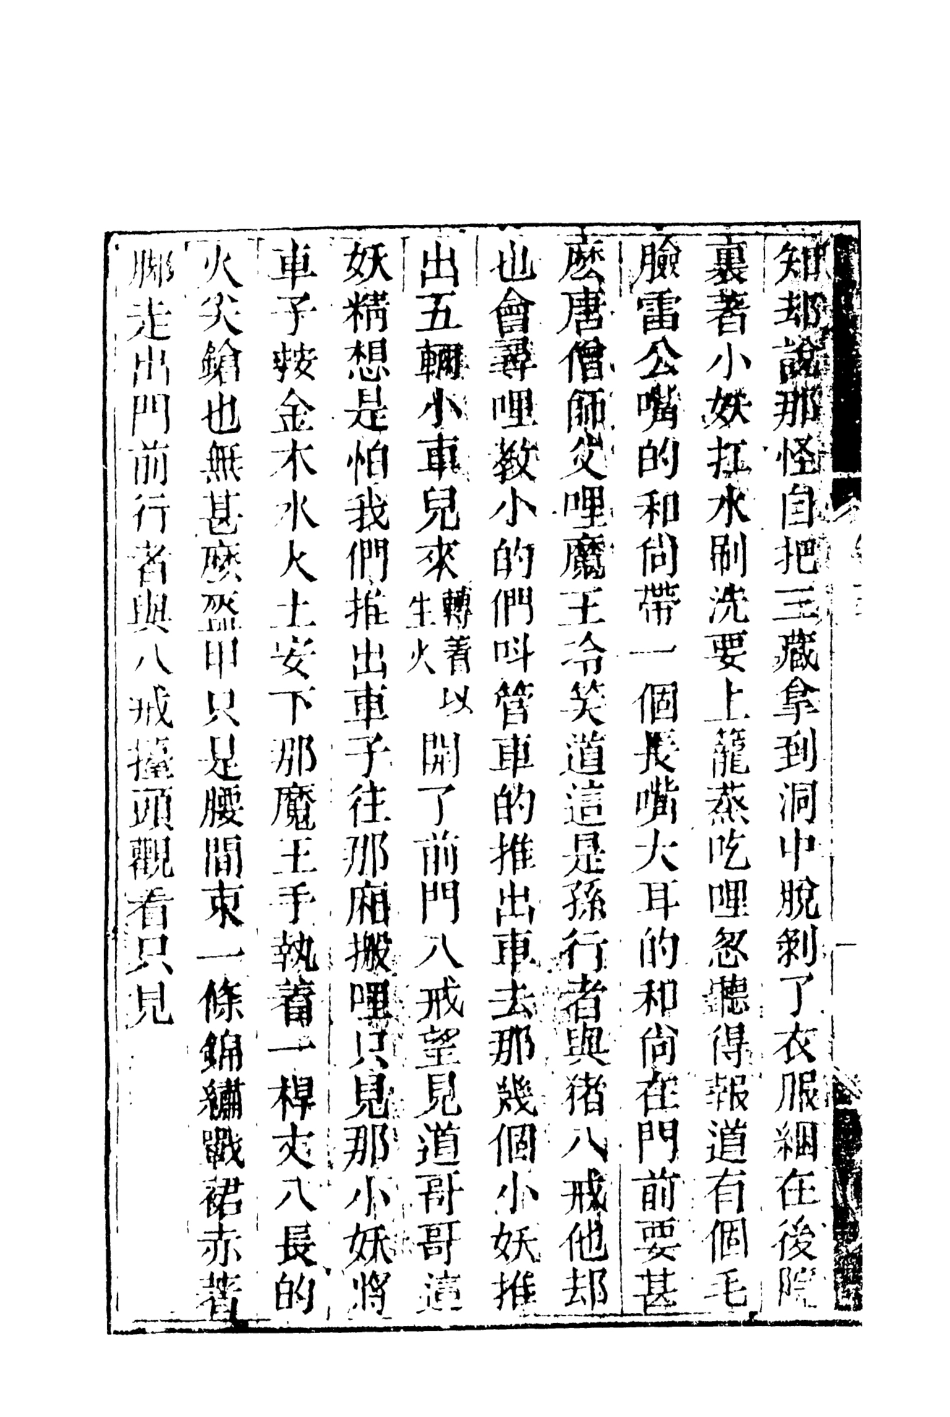 知却說那怪自把三藏拿到洞中脫剝了衣服綑在後院
裏著小妖扛水刷洗要上籠蒸吃哩忽聽得報道有個毛
臉雷公嘴的和尚帶一個長嘴大耳的和尚在門前要甚
麽唐僧師父哩魔王冷笑道這是孫行者與猪八戒他却
也會尋哩教小的們呌管車的推出車去那幾個小妖推
出五輛小車兒來轉着以生火開了前門八戒望見道哥哥這
妖精想是怕我們推出車子往那廂搬哩只見那小妖將
車子按金木水火土安下那魔王手執着一桿丈八長的
火尖鎗也無甚麽盔甲只是腰間束一條錦繡戰裙赤著
脚走出門前行者與八戒擡頭觀看只見